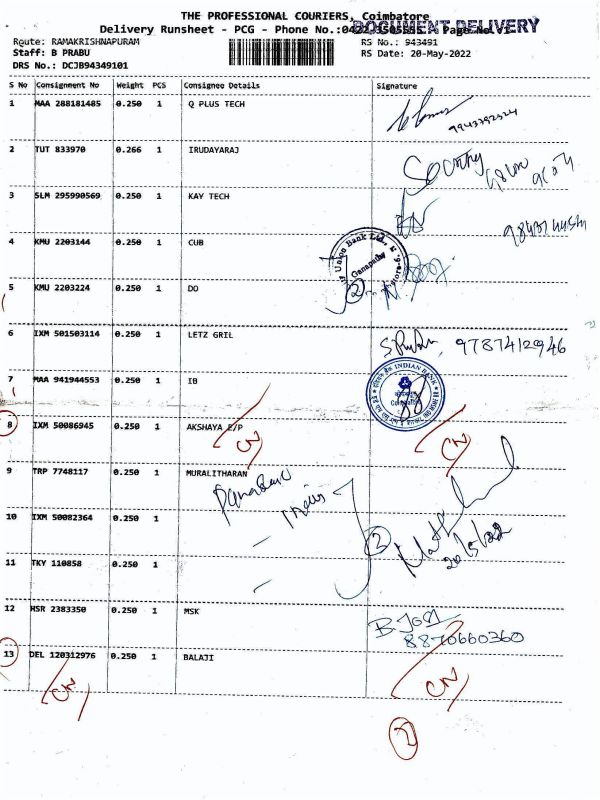 THE PROFESSIONAL COURIERS, Coimbatore
DOCUMENT DELIVERY
Delivery Runsheet - PCG - Phone No.:0422 Page No.:1
Route: RAMAKRISHNAPURAM RS No.: 943491
Staff: B PRABU RS Date: 20-May-2022
DRS No.: DCJB94349101
S No Consignment No Weight PCS Consignee Details Signature
1 MAA 288181485 0.250 1 Q PLUS TECH
9943792524
2 TUT 833970 0.266 1 IRUDAYARAJ
Security
3 SLM 295990569 0.250 1 KAY TECH
4 KMU 2203144 0.250 1 CUB
Union Bank Ltd.,
Ganapathy
5 KMU 2203224 0.250 1 DO
2
6 IXM 501503114 0.250 1 LETZ GRIL
9787412946
7 MAA 941944553 0.250 1 IB
INDIAN BANK
8 IXM 50086945 0.250 1 AKSHAYA E/P
CN CN
9 TRP 7748117 0.250 1 MURALITHARAN
10 IXM 50082364 0.250 1
2
20/5/22
11 TKY 110858 0.250 1
12 HSR 2383350 0.250 1 MSK
8870660360
13 DEL 120312976 0.250 1 BALAJI
CN CN
2